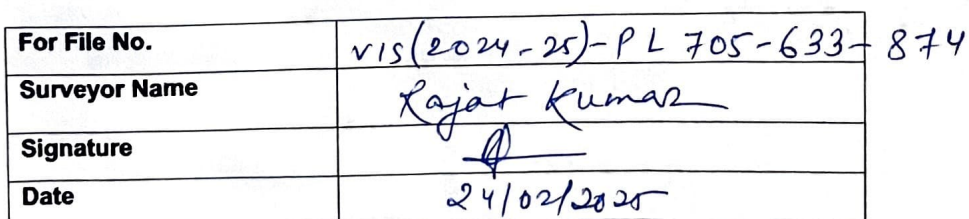 For File No. VIS(2024-25)-PL 705-633-874
Surveyor Name Rajat Kumar
Signature
Date 24/02/2025